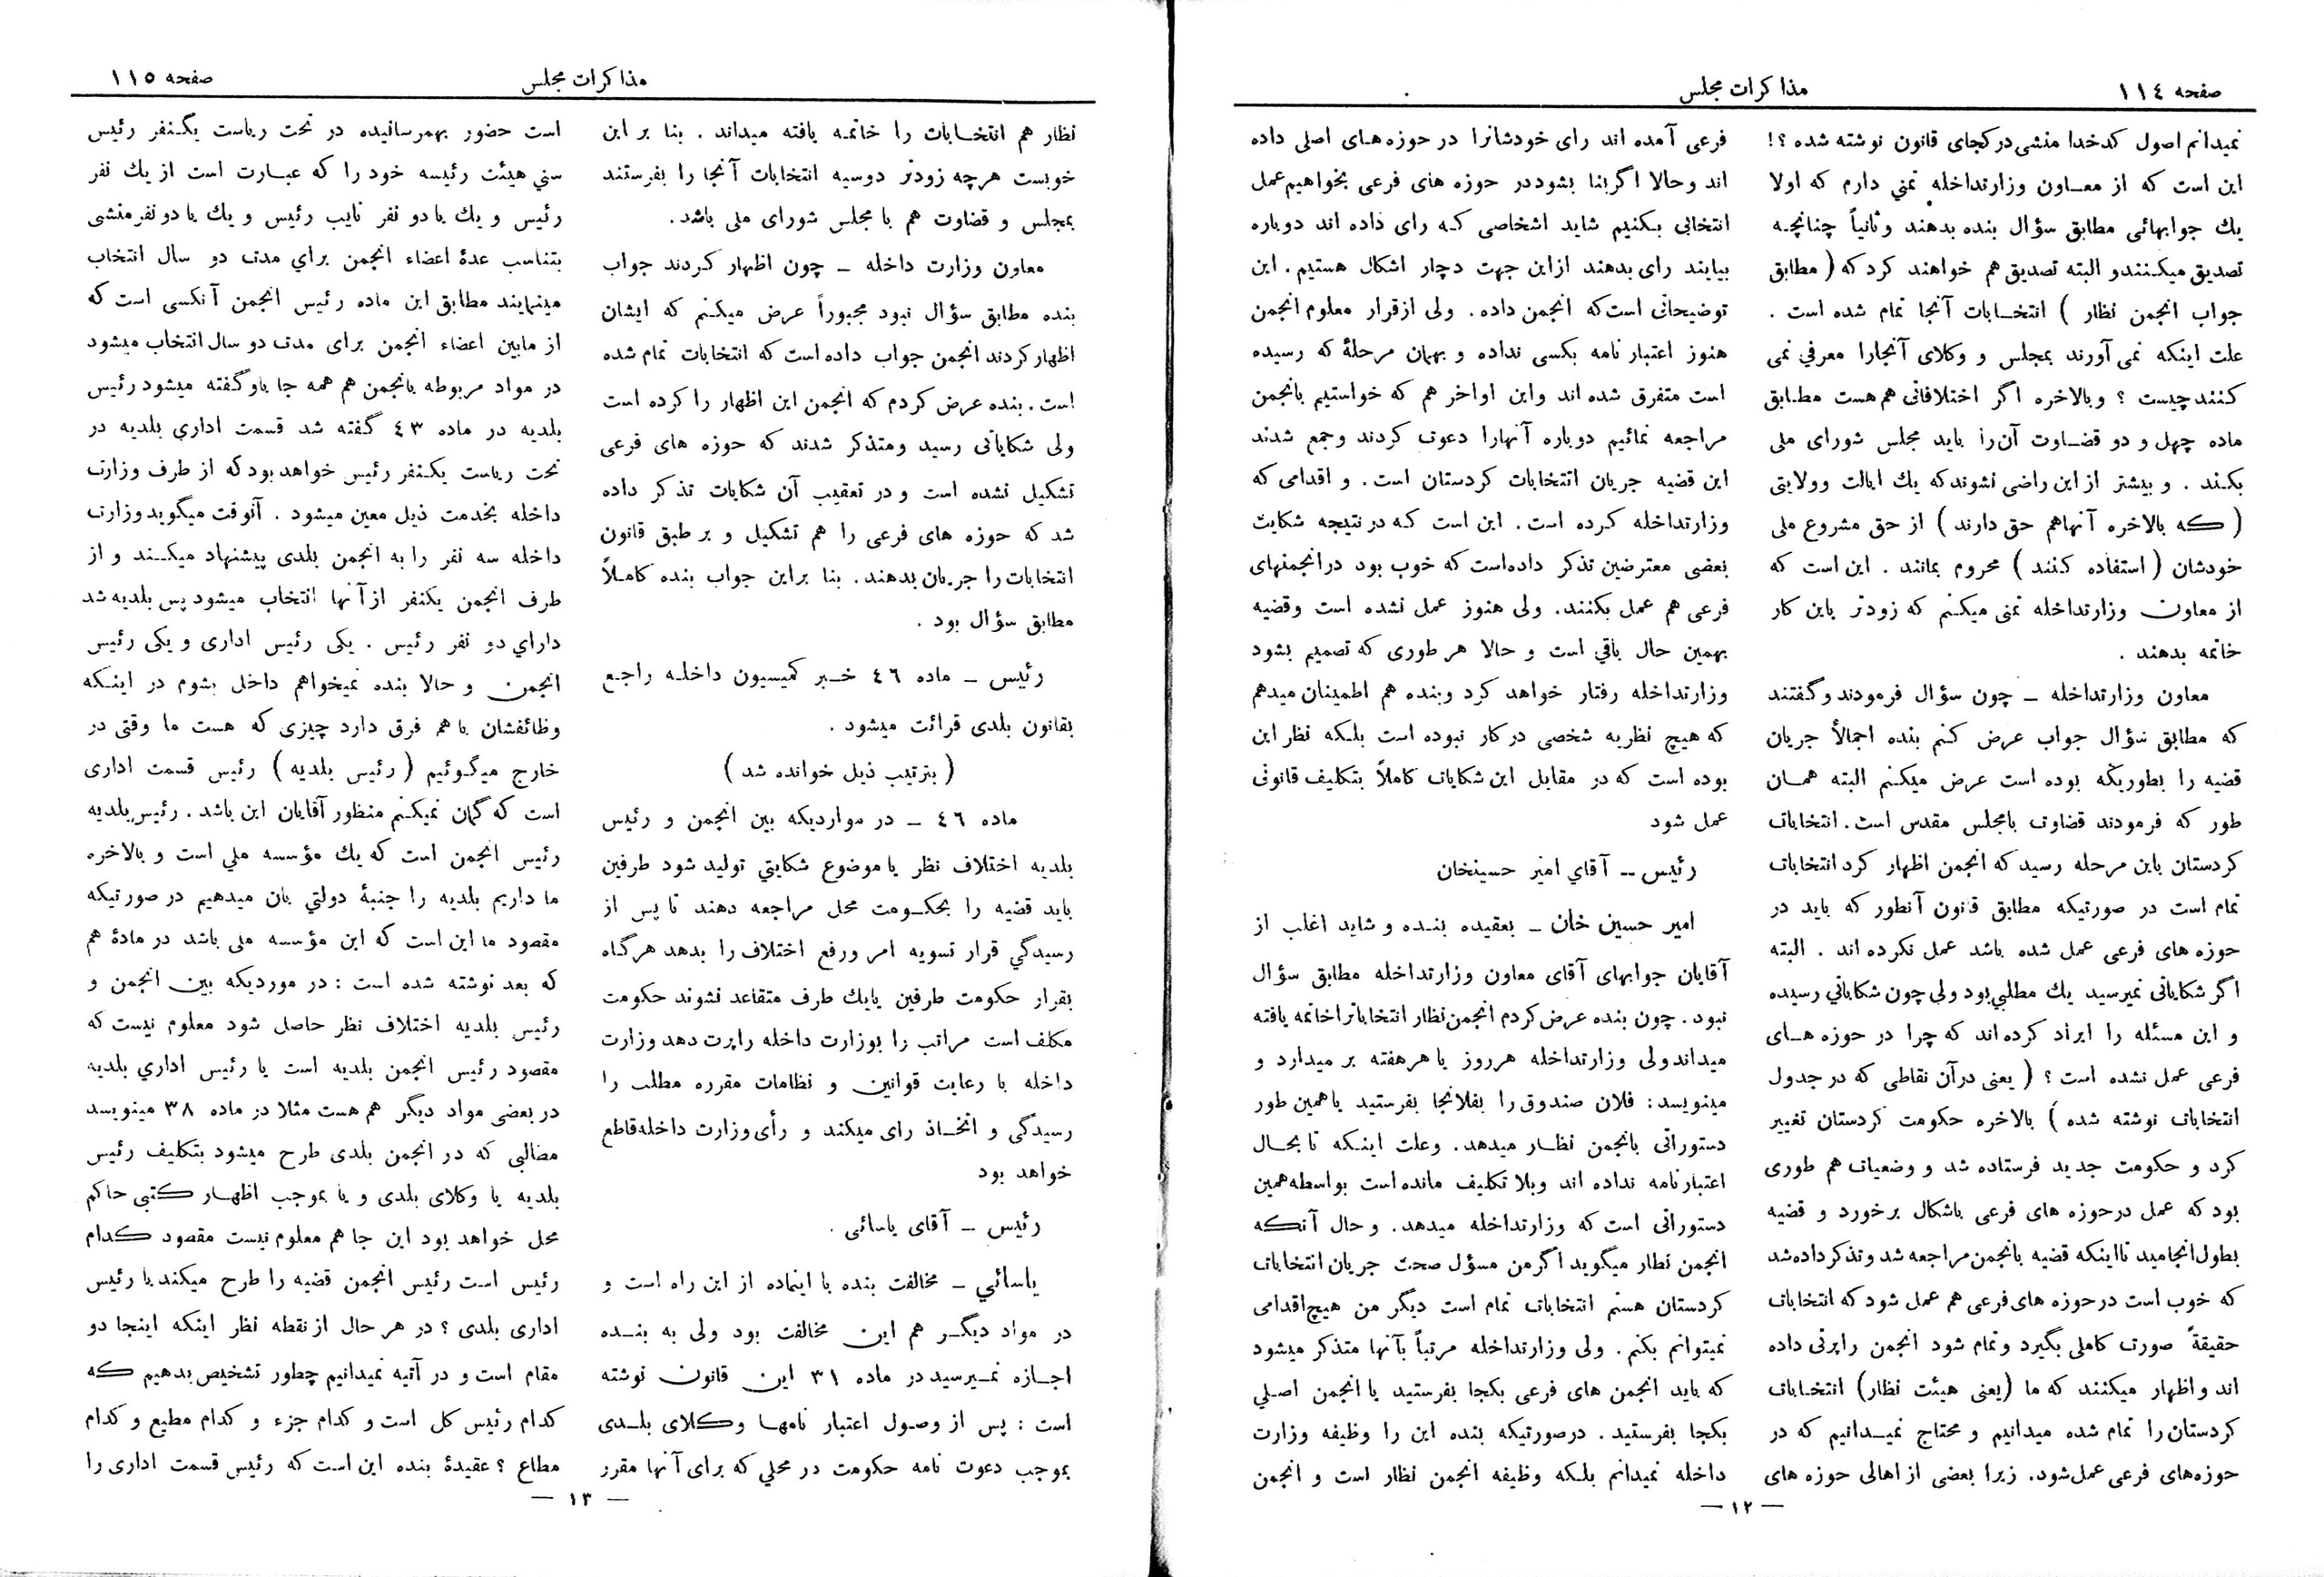 صفحه ١١٤
مذاکرات مجلس
نمیدانم اصول کدخدا منشی درکجای قانون نوشته شده ؟!
این است که از معاون وزارتداخله تمنی دارم که اولا
یك جوابهائی مطابق سؤال بنده بدهند وثانیاً چنانچه
تصدیق میکنندو البته تصدیق هم خواهند کرد که ( مطابق
جواب انجمن نظار ) انتخابات آنجا تمام شده است .
علت اینکه نمی آورند بمجلس و وکلای آنجارا معرفی نمی
کنند چیست ؟ وبالاخره اگر اختلافاتی هم هست مطابق
ماده چهل و دو قضاوت آن را باید مجلس شورای ملی
بکند . و بیشتر از این راضی نشوند که یك ایالت وولایتی
( که بالاخره آنهاهم حق دارند ) از حق مشروع ملی
خودشان ( استفاده کنند ) محروم بمانند . این است که
از معاون وزارتداخله تمنی میکنم که زودتر باین کار
خاتمه بدهند .
معاون وزارتداخله ـ چون سؤال فرمودند وگفتند
که مطابق سؤال جواب عرض کنم بنده اجمالاً جریان
قضیه را بطوریکه بوده است عرض میکنم البته همان
طور که فرمودند قضاوت بامجلس مقدس است. انتخابات
کردستان باین مرحله رسید که انجمن اظهار کرد انتخابات
تمام است در صورتیکه مطابق قانون آنطور که باید در
حوزه های فرعی عمل شده باشد عمل نکرده اند . البته
اگر شکایاتی نمیرسید یك مطلبی بود ولی چون شکایاتی رسیده
و این مسئله را ایراد کرده اند که چرا در حوزه های
فرعی عمل نشده است ؟ ( یعنی در آن نقاطی که در جدول
انتخابات نوشته شده ) بالاخره حکومت کردستان تغییر
کرد و حکومت جدید فرستاده شد و وضعیات هم طوری
بود که عمل درحوزه های فرعی باشکال برخورد و قضیه
بطول انجامید تااینکه قضیه بانجمن مراجعه شد وتذکر داده شد
که خوب است درحوزه های فرعی هم عمل شود که انتخابات
حقیقةً صورت کاملی بگیرد وتمام شود انجمن راپرتی داده
اند و اظهار میکنند که ما (یعنی هیئت نظار) انتخابات
کردستان را تمام شده میدانیم و محتاج نمیدانیم که در
حوزه های فرعی عمل شود. زیرا بعضی از اهالی حوزه های
فرعی آمده اند رای خودشانرا در حوزه های اصلی داده
اند وحالا اگربنا بشوددر حوزه های فرعی بخواهیم عمل
انتخابی بکنیم شاید اشخاصی که رای داده اند دوباره
بیایند رای بدهند ازاین جهت دچار اشکال هستیم. این
توضیحاتی است که انجمن داده. ولی ازقرار معلوم انجمن
هنوز اعتبار نامه بکسی نداده و بهمان مرحلهٔ که رسیده
است متفرق شده اند واین اواخر هم که خواستیم بانجمن
مراجعه نمائیم دوباره آنهارا دعوت کردند وجمع شدند
این قضیه جریان انتخابات کردستان است. و اقدامی که
وزارتداخله کرده است. این است که درنتیجه شکایت
بعضی معترضین تذکر داده است که خوب بود درانجمنهای
فرعی هم عمل بکنند. ولی هنوز عمل نشده است وقضیه
بهمین حال باقی است و حالا هر طوری که تصمیم بشود
وزارتداخله رفتار خواهد کرد وبنده هم اطمینان میدهم
که هیچ نظربه شخصی درکار نبوده است بلکه نظر این
بوده است که در مقابل این شکایات کاملاً بتکلیف قانونی
عمل شود
رئیس ــ آقاي امیر حسینخان
امیر حسین خان ـ بعقیده بنده و شاید اغلب از
آقایان جوابهای آقای معاون وزارتداخله مطابق سؤال
نبود. چون بنده عرض کردم انجمن نظار انتخاباتراخاتمه یافته
میداندولی وزارتداخله هرروز یا هر هفته بر میدارد و
مینویسد: فلان صندوق را بفلانجا بفرستید یاهمین طور
دستوراتی بانجمن نظار میدهد. وعلت اینکه تا بحال
اعتبار نامه نداده اند وبلا تکلیف مانده است بواسطه همین
دستوراتی است که وزارتداخله میدهد. و حال آنکه
انجمن نظار میگوید اگر من مسؤل صحت جریان انتخابات
کردستان هستم انتخابات تمام است دیگر من هیچ اقدامی
نمیتوانم بکنم. ولی وزارتداخله مرتباً بآنها متذکر میشود
که باید انجمن های فرعی بکجا بفرستید یا انجمن اصلي
بکجا بفرستید. درصورتیکه بنده این را وظیفه وزارت
داخله نمیدانم بلکه وظیفه انجمن نظار است و انجمن
— ١٢ —
مذاکرات مجلس
صفحه ١١٥
نظار هم انتخابات را خاتمه یافته میداند. بنا بر این
خوبست هرچه زودتر دوسیه انتخابات آنجا را بفرستند
بمجلس و قضاوت هم با مجلس شورای ملی باشد.
معاون وزارت داخله ـ چون اظهار کردند جواب
بنده مطابق سؤال نبود مجبوراً عرض میکنم که ایشان
اظهار کردند انجمن جواب داده است که انتخابات تمام شده
است. بنده عرض کردم که انجمن این اظهار را کرده است
ولی شکایاتی رسید ومتذکر شدند که حوزه های فرعی
تشکیل نشده است و در تعقیب آن شکایات تذکر داده
شد که حوزه های فرعی را هم تشکیل و بر طبق قانون
انتخابات را جریان بدهند. بنا براین جواب بنده کاملاً
مطابق سؤال بود .
رئیس ـ ماده ٤٦ خبر کمیسیون داخله راجع
بقانون بلدی قرائت میشود .
( بترتیب ذیل خوانده شد )
ماده ٤٦ ـ در مواردیکه بین انجمن و رئیس
بلدیه اختلاف نظر یا موضوع شکایتي تولید شود طرفین
باید قضیه را بحکومت محل مراجعه دهند تا پس از
رسیدگي قرار تسویه امر ورفع اختلاف را بدهد هرگاه
بقرار حکومت طرفین یایك طرف متقاعد نشوند حکومت
مکلف است مراتب را بوزارت داخله راپرت دهد وزارت
داخله با رعایت قوانین و نظامات مقرره مطلب را
رسیدگی و اتخاذ رای میکند و رأی وزارت داخله قاطع
خواهد بود
رئیس ـ آقای یاسائی .
یاسائي ـ مخالفت بنده با اینماده از این راه است و
در مواد دیگر هم این مخالفت بود ولی به بنده
اجازه نمیرسید در ماده ٣١ این قانون نوشته
است : پس از وصول اعتبار نامها وکلای بلدی
بموجب دعوت نامه حکومت در محلي که برای آنها مقرر
است حضور بهمرسانیده در تحت ریاست یکنفر رئیس
سني هیئت رئیسه خود را که عبارت است از یك نفر
رئیس و یك یا دو نفر نایب رئیس و یك یا دو نفر منشی
بتناسب عدهٔ اعضاء انجمن براي مدت دو سال انتخاب
مینمایند مطابق این ماده رئیس انجمن آنکسی است که
از مابین اعضاء انجمن برای مدت دو سال انتخاب میشود
در مواد مربوطه بانجمن هم همه جا باو گفته میشود رئیس
بلدیه در ماده ٤٣ گفته شد قسمت اداري بلدیه در
تحت ریاست یکنفر رئیس خواهد بود که از طرف وزارت
داخله بخدمت ذیل معین میشود . آنوقت میگوید وزارت
داخله سه نفر را به انجمن بلدی پیشنهاد میکند و از
طرف انجمن یکنفر از آنها انتخاب میشود پس بلدیه شد
داراي دو نفر رئیس . یکی رئیس اداری و یکی رئیس
انجمن و حالا بنده نمیخواهم داخل بشوم در اینکه
وظائفشان با هم فرق دارد چیزی که هست ما وقتی در
خارج میگوئیم ( رئیس بلدیه ) رئیس قسمت اداری
است که گمان نمیکنم منظور آقایان این باشد . رئیس بلدیه
رئیس انجمن است که یك مؤسسه ملي است و بالاخره
ما داریم بلدیه را جنبهٔ دولتي بان میدهیم در صورتیکه
مقصود ما این است که این مؤسسه ملی باشد در مادهٔ هم
که بعد نوشته شده است : در موردیکه بین انجمن و
رئیس بلدیه اختلاف نظر حاصل شود معلوم نیست که
مقصود رئیس انجمن بلدیه است یا رئیس اداري بلدیه
در بعضی مواد دیگر هم هست مثلا در ماده ٣٨ مینویسد
مضالبی که در انجمن بلدی طرح میشود بتکلیف رئیس
بلدیه یا وکلای بلدی و یا بموجب اظهار کتبی حاکم
محل خواهد بود این جا هم معلوم نیست مقصود کدام
رئیس است رئیس انجمن قضیه را طرح میکند یا رئیس
اداری بلدی ؟ در هر حال از نقطه نظر اینکه اینجا دو
مقام است و در آتیه نمیدانیم چطور تشخیص بدهیم که
کدام رئیس کل است و کدام جزء و کدام مطیع و کدام
مطاع ؟ عقیدهٔ بنده این است که رئیس قسمت اداری را
— ١٣ —